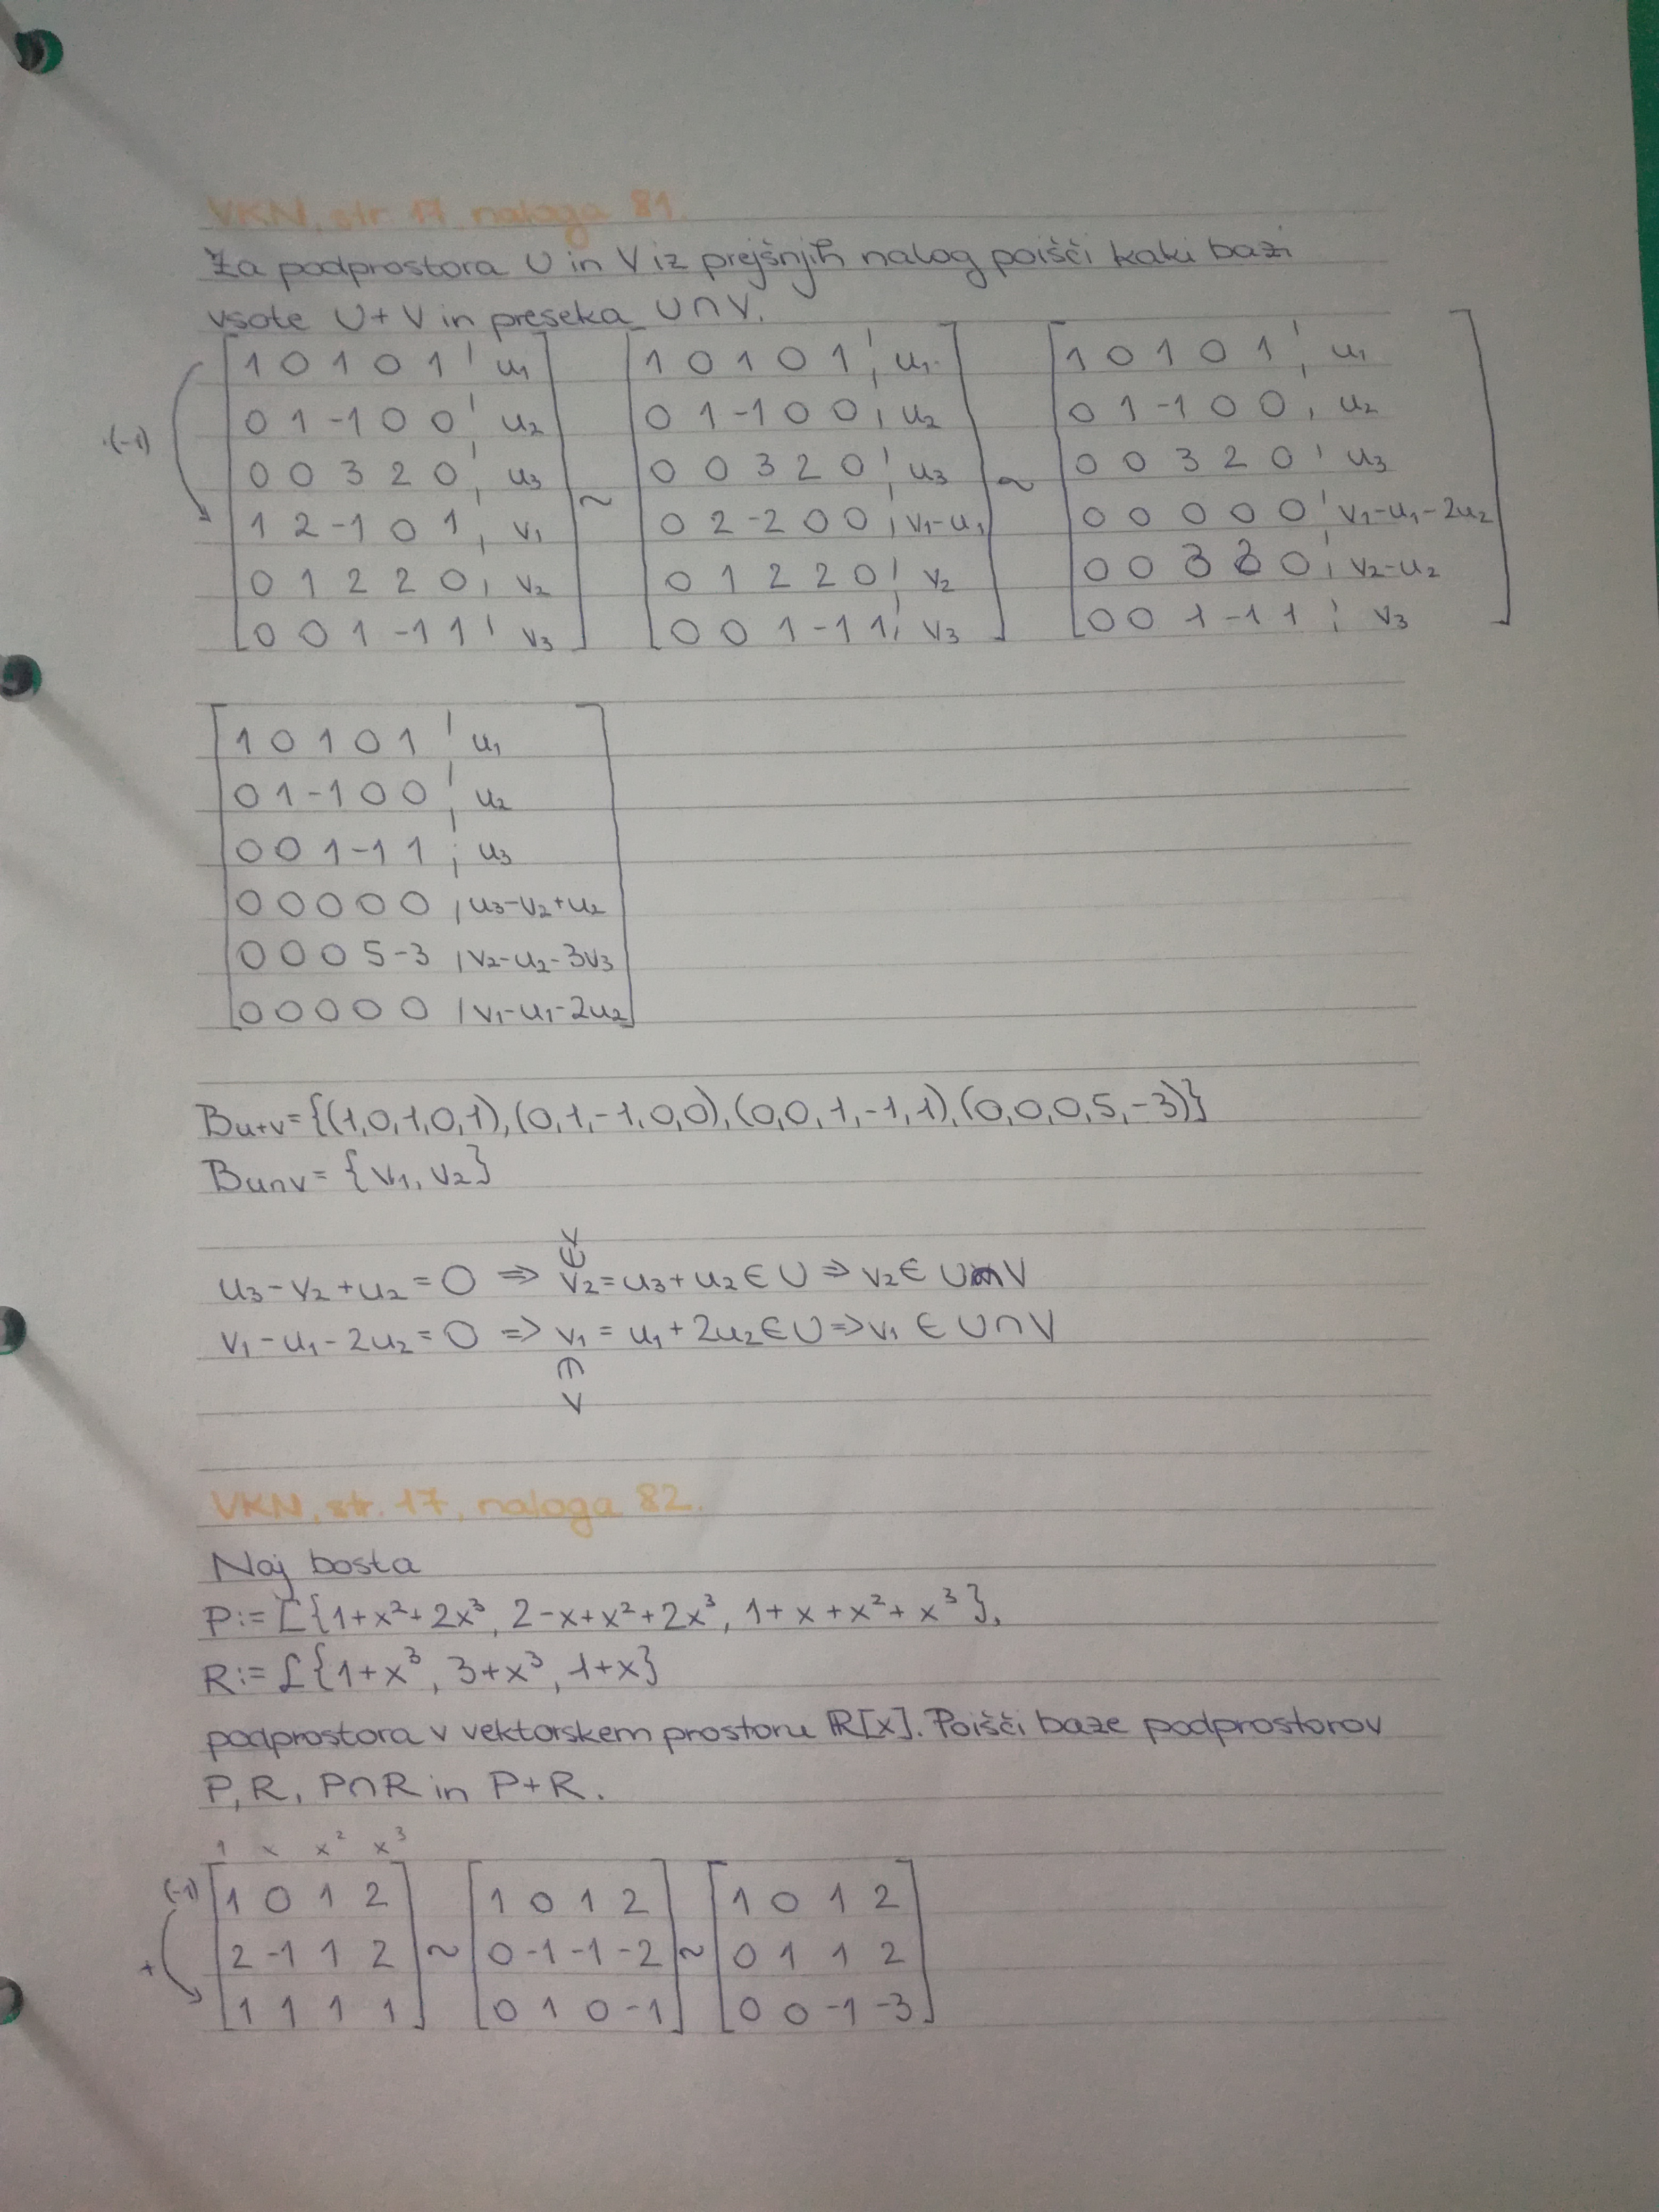 VKN, str. 17, naloga 81.
Za podprostora U in V iz prejšnjih nalog poišči kaki bazi
vsote U+V in preseka U∩V.
·(-1)
[1 0 1 0 1 | u₁
0 1 -1 0 0 | u₂
0 0 3 2 0 | u₃
1 2 -1 0 1 | v₁
0 1 2 2 0 | v₂
0 0 1 -1 1 | v₃]
~
[1 0 1 0 1 | u₁
0 1 -1 0 0 | u₂
0 0 3 2 0 | u₃
0 2 -2 0 0 | v₁-u₁
0 1 2 2 0 | v₂
0 0 1 -1 1 | v₃]
~
[1 0 1 0 1 | u₁
0 1 -1 0 0 | u₂
0 0 3 2 0 | u₃
0 0 0 0 0 | v₁-u₁-2u₂
0 0 3 2 0 | v₂-u₂
0 0 1 -1 1 | v₃]
[1 0 1 0 1 | u₁
0 1 -1 0 0 | u₂
0 0 1 -1 1 | u₃
0 0 0 0 0 | u₃-v₂+u₂
0 0 0 5 -3 | v₂-u₂-3v₃
0 0 0 0 0 | v₁-u₁-2u₂]
B_{U+V}={(1,0,1,0,1),(0,1,-1,0,0),(0,0,1,-1,1),(0,0,0,5,-3)}
B_{U∩V}={v₁, v₂}
V
∈
u₃-v₂+u₂=0 ⇒ v₂=u₃+u₂∈U ⇒ v₂∈U∩V
v₁-u₁-2u₂=0 ⇒ v₁=u₁+2u₂∈U ⇒ v₁∈U∩V
∈
V
VKN, str. 17, naloga 82.
Naj bosta
P:=L{1+x²+2x³, 2-x+x²+2x³, 1+x+x²+x³},
R:=L{1+x³, 3+x³, 1+x}
podprostora v vektorskem prostoru ℝ[x]. Poišči baze podprostorov
P, R, P∩R in P+R.
1 x x² x³
(-1)
+
[1 0 1 2
2 -1 1 2
1 1 1 1]
~
[1 0 1 2
0 -1 -1 -2
0 1 0 -1]
~
[1 0 1 2
0 1 1 2
0 0 -1 -3]